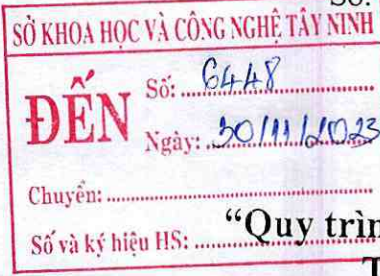 Số:
SỞ KHOA HỌC VÀ CÔNG NGHỆ TÂY NINH
ĐẾN
Số: 6448
Ngày: 30/11/2023
Chuyển:
Số và ký hiệu HS:
“Quy trìn
T